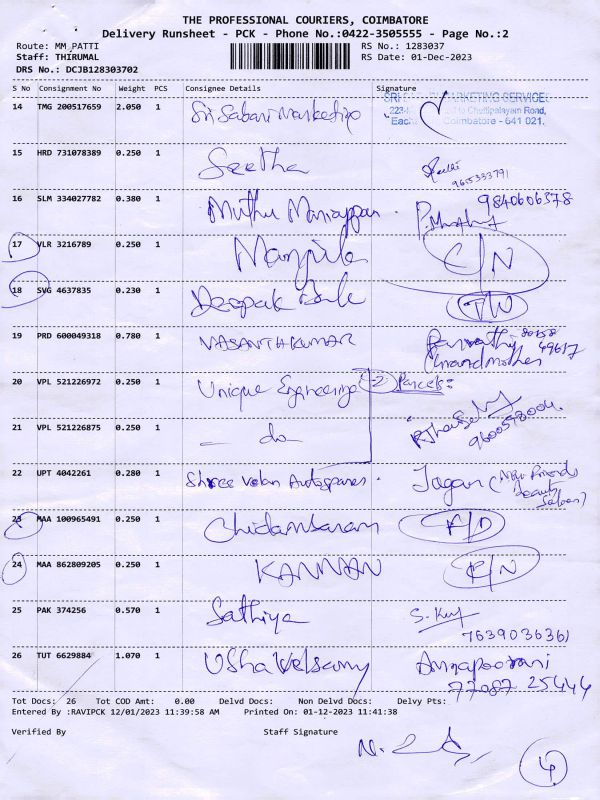 THE PROFESSIONAL COURIERS, COIMBATORE
Delivery Runsheet - PCK - Phone No.:0422-3505555 - Page No.:2
Route: MM PATTI RS No.: 1283037
Staff: THIRUMAL RS Date: 01-Dec-2023
DRS No.: DCJB128303702
S No Consignment No Weight PCS Consignee Details Signature
14 TMG 200517659 2.050 1 Sri Sabari Marketing
MARKETING SERVICES
Chettipalayam Road,
Coimbatore - 641 021.
15 HRD 731078389 0.250 1 Seetha
9615333791
16 SLM 334027782 0.380 1 Muthu Mariappan. 9840606378
17 VLR 3216789 0.250 1 Manjula C/N
18 SVG 4637835 0.230 1 Deepak
19 PRD 600049318 0.780 1 VASANTHKUMAR Parvathy- 80158
49617
Grandmother
20 VPL 521226972 0.250 1 Unique Engineering 2 Parcels:
21 VPL 521226875 0.250 1 - do - 9600598004.
22 UPT 4042261 0.280 1 Shree Velan Autospares. Jagan (New Friends
beauty
Saloon)
23 MAA 100965491 0.250 1 Chidambaram
24 MAA 862809205 0.250 1 KANNAN
25 PAK 374256 0.570 1 Sathiya S. Kuy
7639036361
26 TUT 6629884 1.070 1 Usha Velsamy Annapoorani
77087 25444
Tot Docs: 26 Tot COD Amt: 0.00 Delvd Docs: Non Delvd Docs: Delvy Pts:
Entered By :RAVIPCK 12/01/2023 11:39:58 AM Printed On: 01-12-2023 11:41:38
Verified By Staff Signature
4